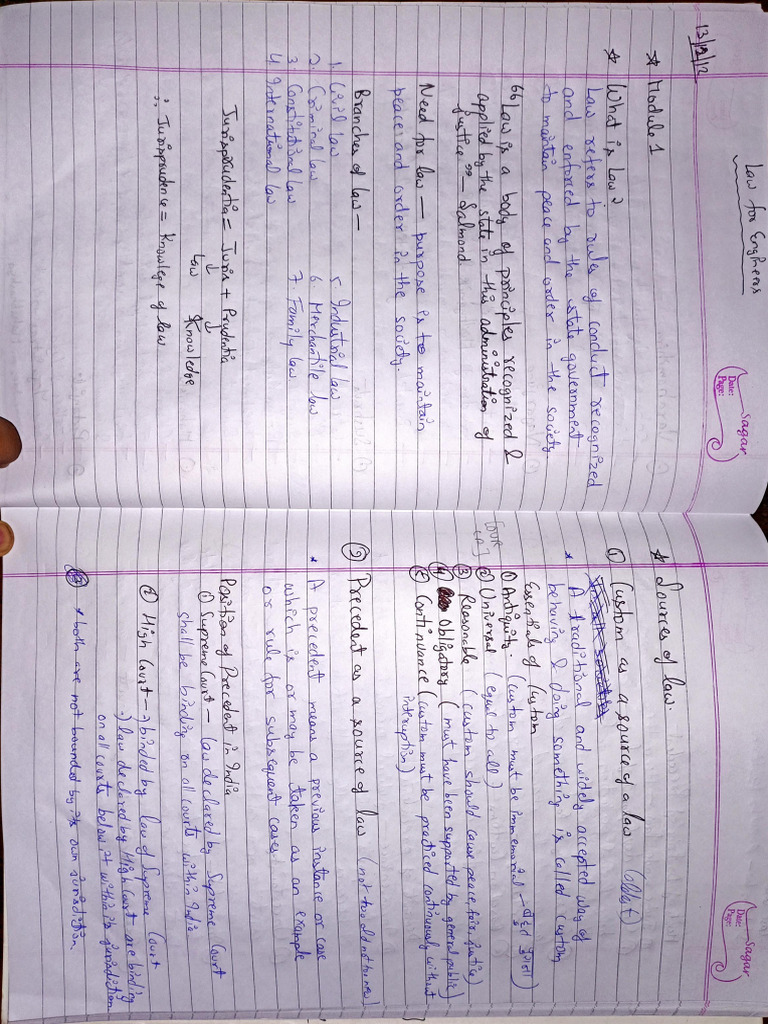 Law for Engineers
Sagar
Date:
Page:
13/12/12
* Module 1
* What is Law?
Law refers to rules of conduct recognized
and enforced by the state government
to maintain peace and order in the society.
"Law is a body of principles recognized &
applied by the state in this administration of
justice" - Salmond.
Need for law - purpose is to maintain
peace and order in the society.
Branches of law -
1. Civil law
2. Criminal law
3. Constitutional law
4. International law
5. Industrial law
6. Merchantile law
7. Family law
Jurisprudentia = Juris + Prudentia
law Knowledge
∴ Jurisprudence = Knowlege of law
Sagar
Date:
Page:
* Sources of law.
① Custom as a source of a law (oldest)
* A traditional and widely accepted way of
behaving & doing something is called custom
Essentials of Custom
① Antiquity. (custom must be immemorial - बहुत पुराना)
② Universal (equal to all)
③ Reasonable (custom should cause peace, for justice)
④ Obligatory (must have been supported by general public)
⑤ Continuance (custom must be practiced continuously without
interuption)
② Precedent as a source of law (not too old not too new)
* A precedent means a previous instance or case
which is or may be taken as an example
or rule for subsequent cases.
Position of Precedent in India
① Supreme Court - law declared by Supreme Court
shall be binding on all courts within India
② High Court -→ binded by law of Supreme Court
→ law declared by High Court are binding
on all courts below it within its jurisdiction
* both are not bounded by its own jurisdiction.